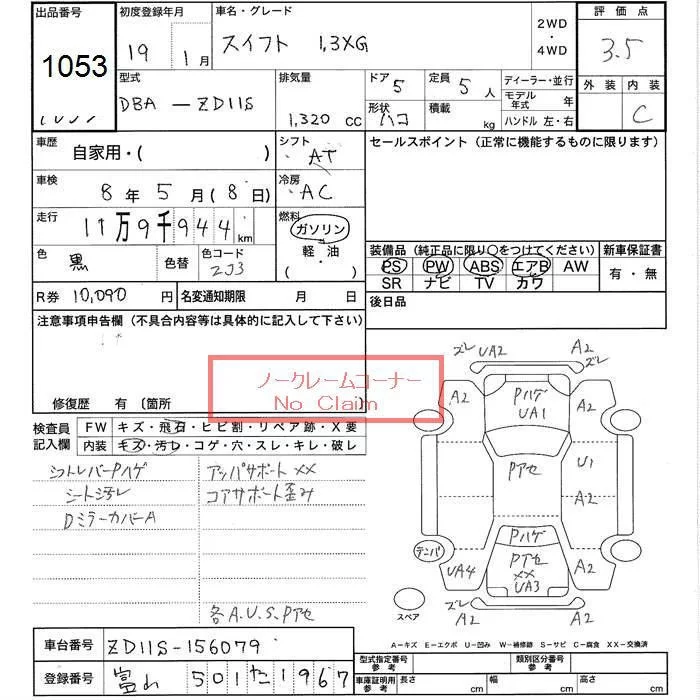 出品番号
1053
初度登録年月
19 1月
車名・グレード
スイフト 1,3XG
2WD
・
4WD
評価点
3.5
外装 内装
C
型式
DBA-ZD11S
排気量
1,320 cc
ドア 5
形状 ハコ
定員 5 人
積載 kg
ディーラー・並行
モデル年式 年
ハンドル 左・右
車歴
自家用・( )
シフト
AT
セールスポイント (正常に機能するものに限ります)
車検
8年 5月(8日)
冷房
AC
走行
11万9千944km
燃料
ガソリン
・
軽・油
( )
色
黒
色替
色コード
ZJ3
装備品 (純正品に限り○をつけてください)
PS PW ABS エアB AW
SR ナビ TV カワ
新車保証書
有・無
R券 10,090円
名変通知期限 月 日
後日品
注意事項申告欄 (不具合内容等は具体的に記入して下さい)
ノークレームコーナー
No Claim
修復歴 有 〔箇所 〕
検査員記入欄
FW キズ・飛石・ヒビ割・リペア跡・X要
内装 キズ・汚レ・コゲ・穴・スレ・キレ・破レ
シフトレバーPハゲ
シート汚レ
DミラーカバーA
アッパサポートXX
コアサポート歪み
各A.U.S.Pアセ
ズレ UA2
A2 ズレ
A2
Pハゲ
UA1
A2
Pアセ
U1
A2
テンパ
Pハゲ
Pアセ
XX
UA3
UA4
A2
ズレ A2
A2
スペア
A-キズ E-エクボ U-凹み W-補修跡 S-サビ C-腐食 XX-交換済
車台番号 ZD11S-156079
登録番号 富山 501た1967
型式指定番号 参考
類別区分番号 参考
車庫証明用 参考
長さ cm
幅 cm
高さ cm